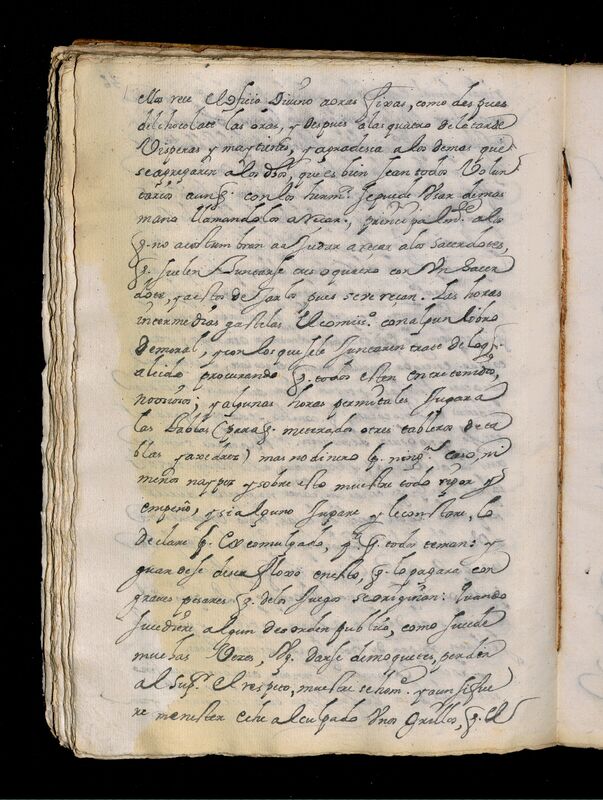 ellos rece el oficio Divino a oras fixas, como despues
del chocolate las oras, y despues a las quatro de la tarde
Visperas y maytines, y agradesca a los demas que
se agregaren a los dhos, que es bien sean todos Volun
tarios aunq. con los herm.s se puede Usar de mas
maña llamandolos a recar, principalm.te a los
q. no acostumbran a aiudar a reçar a los sacerdotes,
q. suelen Juncarse tres o quatro con Un Sacer
dote, y a estos dejarlos pues se reçan. Las horas
intermedias gastelas el comiss.o con algun libro
de moral, y con los que se le Juntaren trate de lo q.
a leido procurando q. todos esten entretenidos,
no ociosos; y algunas horas permitales Jugar a
las Tablas (para q. mete tres tableros de ta
blas y axedrez) mas no dinero p. ning.n caso, ni
menos naypes y sobre esto muestre todo rigor y
empeño, y si alguno Jugare y le constare, lo
declare p. Excomulgado, p.a q. todos teman: y
guardese de ser floxo en esto, q. lo pagara con
graves pesares q. de los Juegos se originan: Quando
sucediere algun desorden publico, como sucede
muchas Vezes, v.g. darse de moquetes, perder
al Sup.r el respeto, muestrese hom.e y aun si fue
re menester eche al culpado Unos Grillos, q. el